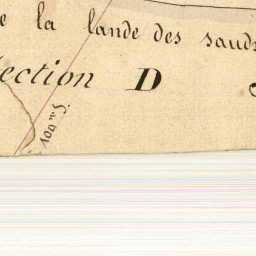 e la lande des saud
Section D